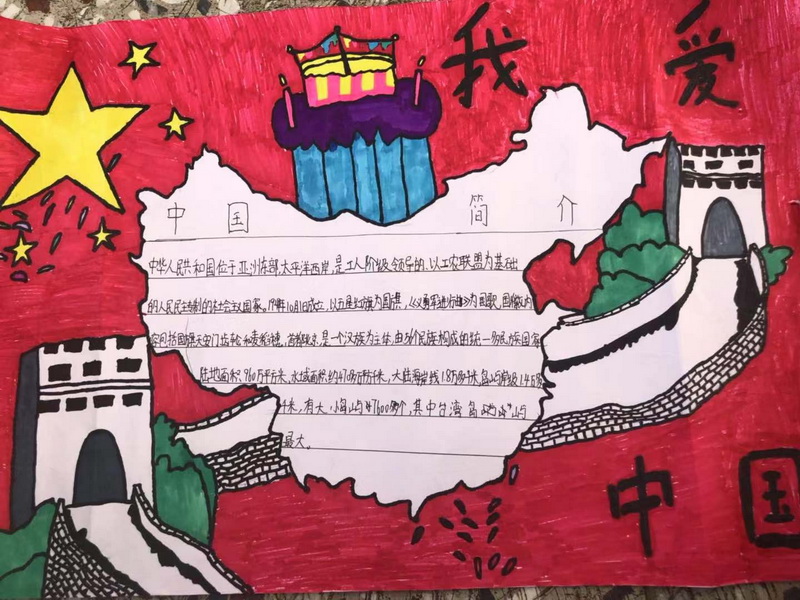 我爱
中国简介
中华人民共和国位于亚洲东部,太平洋西岸,是工人阶级领导的,以工农联盟为基础
的人民民主专制的社会主义国家。1949年10月1日成立,以五星红旗为国旗,《义勇军进行曲》为国歌,国徽内
容包括国旗天安门齿轮和麦稻穗,首都北京,是一个汉族为主体,由56个民族构成的统一多民族国家
陆地面积:960万平方米,水域面积:约470多万平方千米,大陆海岸线1.8万多千米,岛屿岸线1.4万多
千米,有大小岛屿7600多个,其中台湾岛
最大。
中国